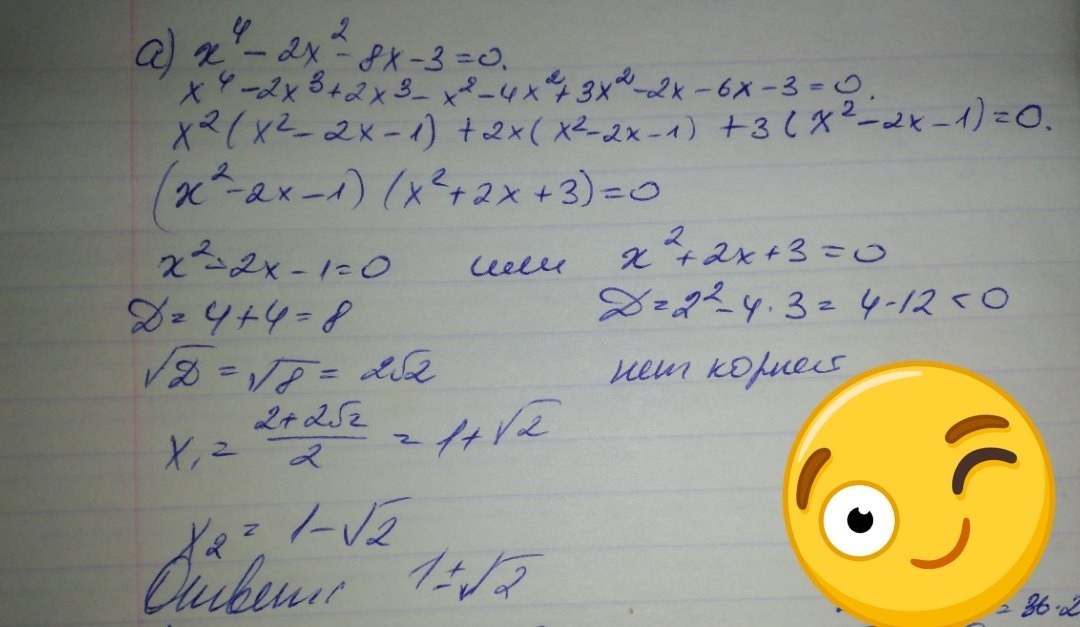 а) x⁴ - 2x² - 8x - 3 = 0.
x⁴ - 2x³ + 2x³ - x² - 4x² + 3x² - 2x - 6x - 3 = 0.
x² (x² - 2x - 1) + 2x (x² - 2x - 1) + 3 (x² - 2x - 1) = 0.
(x² - 2x - 1) (x² + 2x + 3) = 0
x² - 2x - 1 = 0 или x² + 2x + 3 = 0
D = 4 + 4 = 8 D = 2² - 4 · 3 = 4 - 12 < 0
√D = √8 = 2√2 нет корней
x₁ = (2 + 2√2)/2 = 1 + √2
x₂ = 1 - √2
Ответ: 1 ± √2
= 36·2